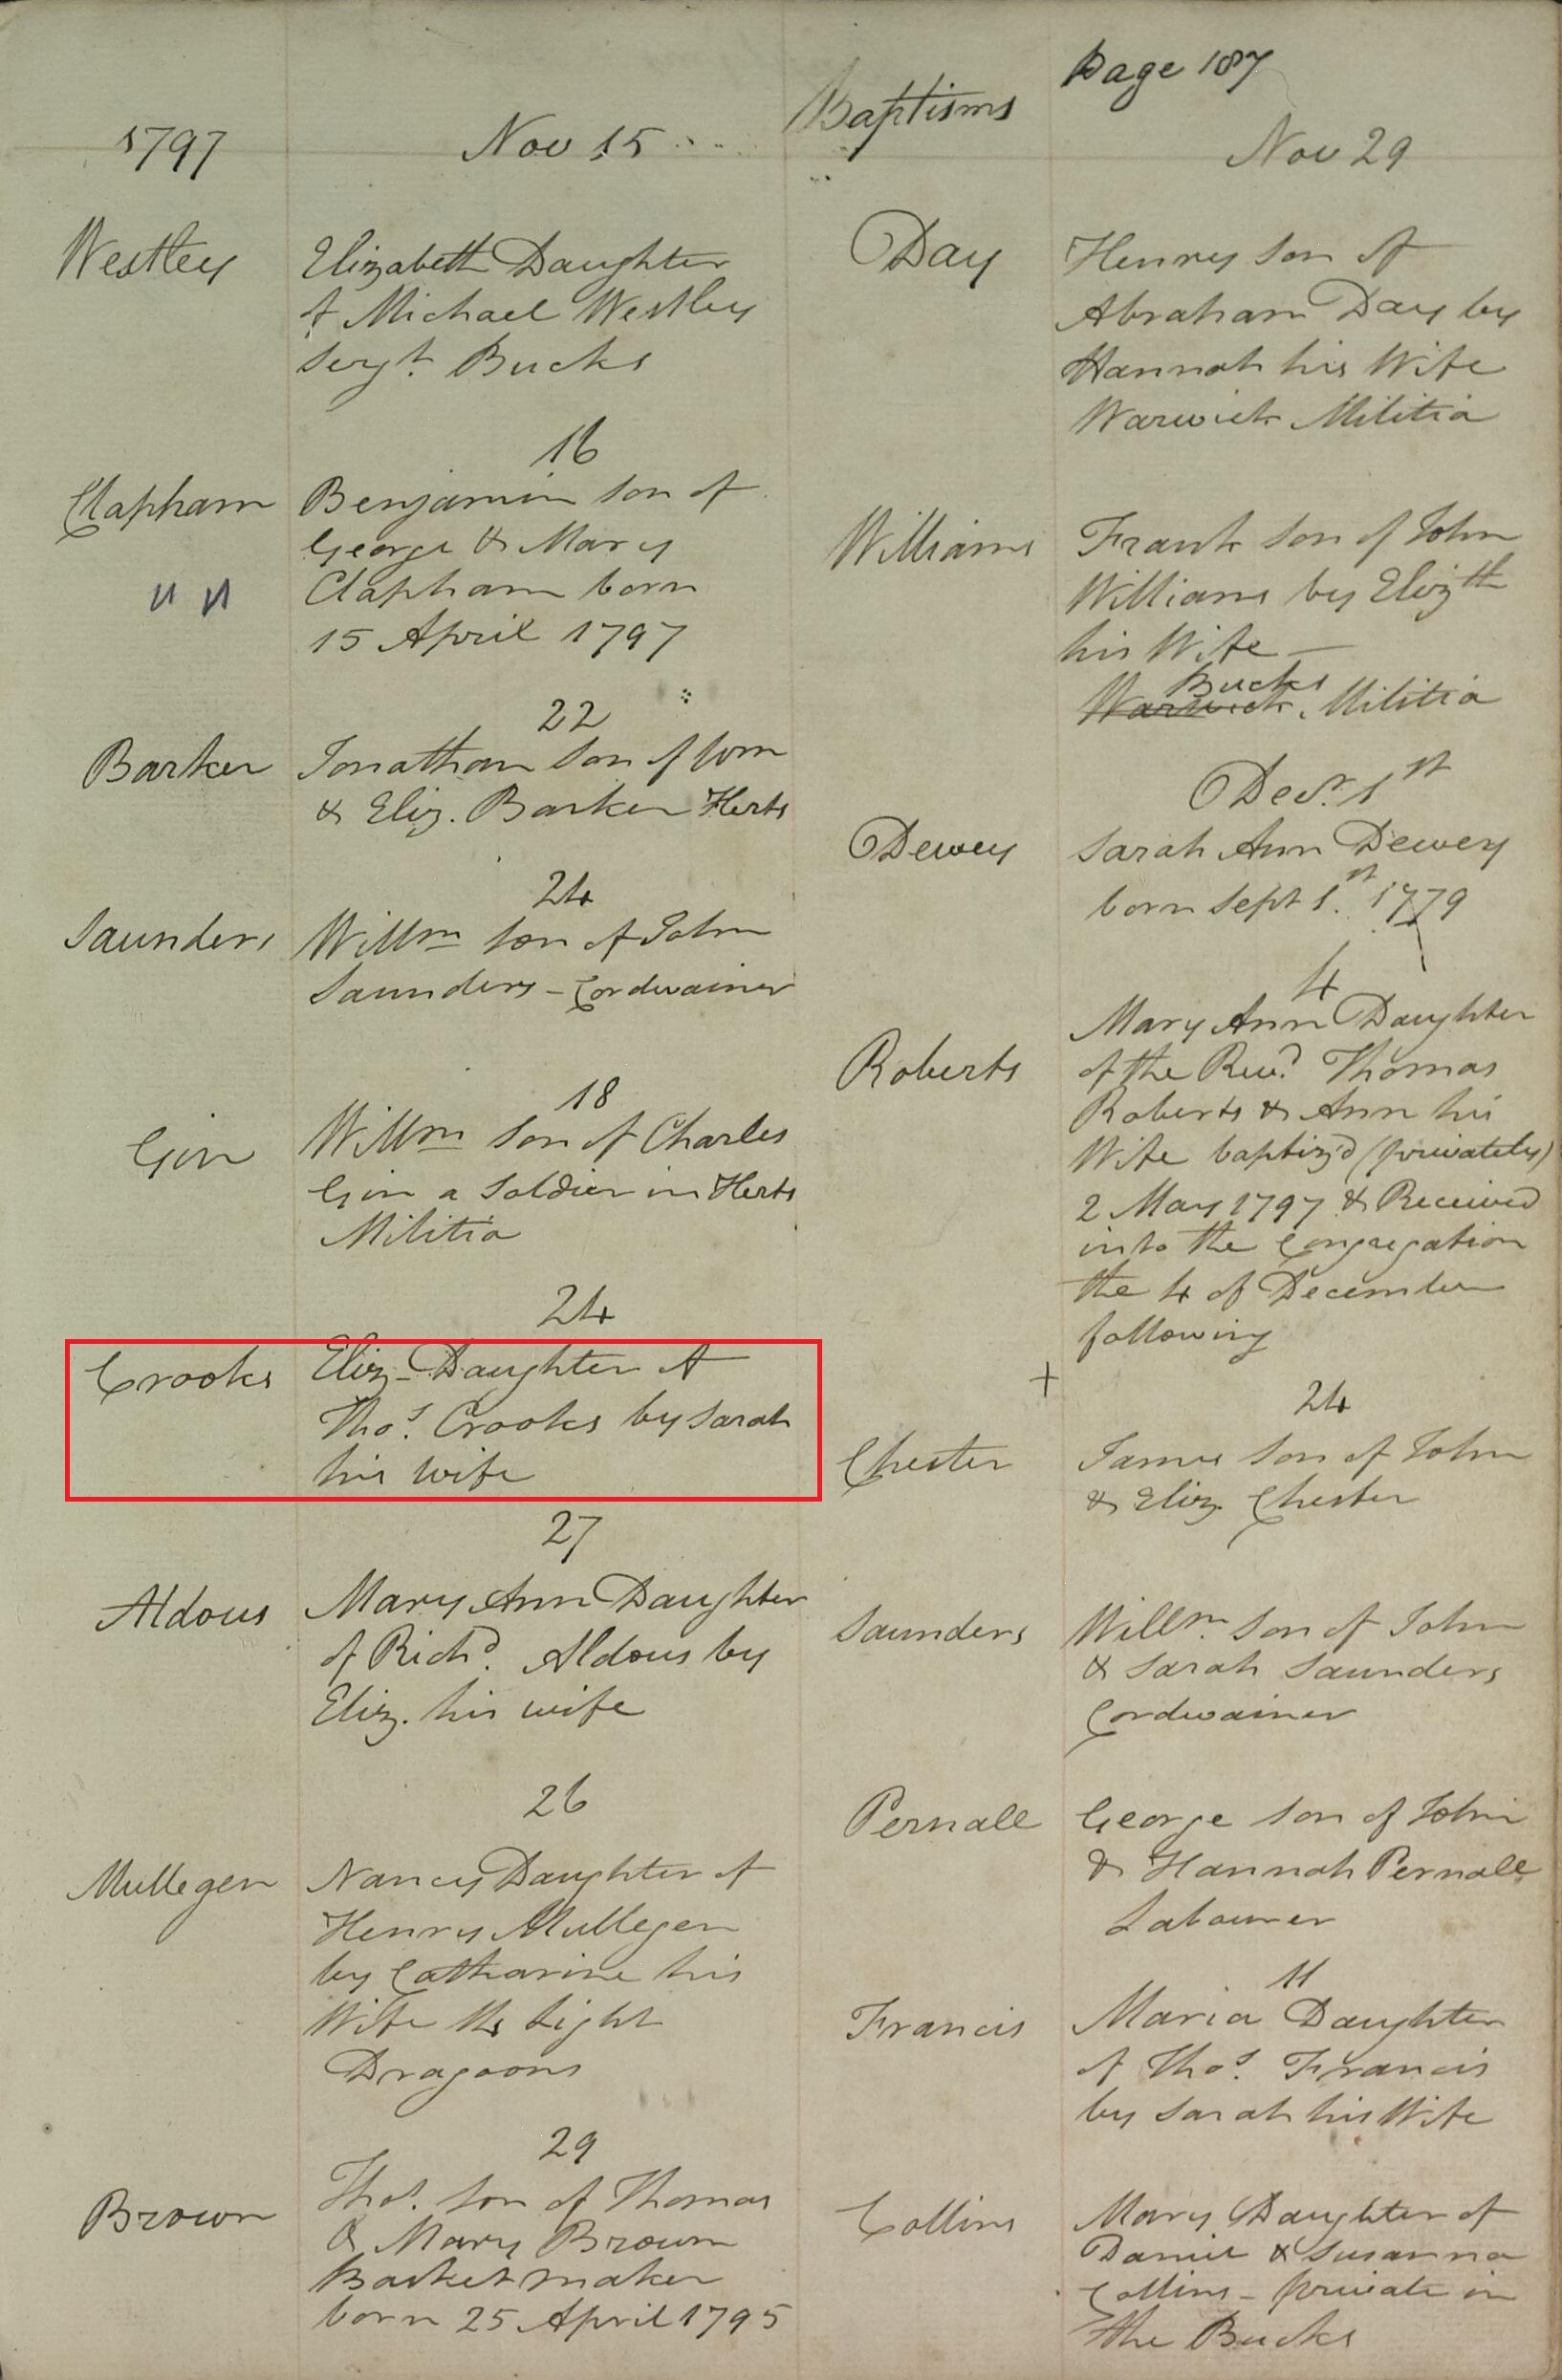 Page 187
Baptisms
1797
Nov 15
Westley
Elizabeth Daughter
of Michael Westley
Sergt. Bucks
16
Clapham
Benjamin Son of
George & Mary
" "
Clapham born
15 April 1797
22
Barker
Jonathan Son of Wm
& Eliz. Barker Herts
24
Saunders
Willm Son of John
Saunders - Cordwainer
18
Gin
Willm Son of Charles
Gin a Soldier in Herts
Militia
24
Crooks
Eliz. Daughter of
Thos. Crooks by Sarah
his wife
27
Aldous
Mary Ann Daughter
of Richd. Aldous by
Eliz. his wife
26
Mullegen
Nancy Daughter of
Henry Mullegen
by Catharine his
Wife Light
Dragoons
29
Brown
Thos. Son of Thomas
& Mary Brown
Basket maker
born 25 April 1795
Nov 29
Day
Henry Son of
Abraham Day by
Hannah his Wife
Warwick Militia
Williams
Frank Son of John
Williams by Elizth
his Wife —
Bucks
Warwick Militia
Decr. 1st
Dewey
Sarah Ann Dewey
born Sept 1st. 1779
4
Roberts
Mary Ann Daughter
of the Revd. Thomas
Roberts & Ann his
Wife baptiz'd (privately)
2 May 1797 & Received
into the Congregation
the 4 of December
following
+
24
Chester
James Son of John
& Eliz. Chester
Saunders
Willm. Son of John
& Sarah Saunders
Cordwainer
Pernall
George Son of John
& Hannah Pernall
Labourer
11
Francis
Maria Daughter
of Thos. Francis
by Sarah his Wife
Collins
Mary Daughter of
Daniel & Susanna
Collins - private in
the Bucks